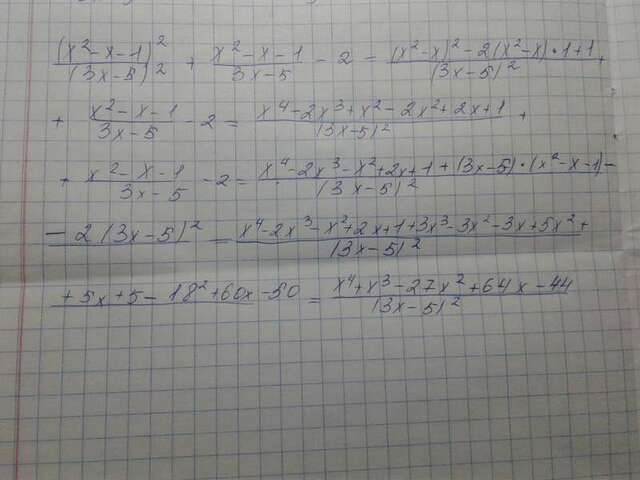 (x²-x-1)²/(3x-5)² + x²-x-1/3x-5 - 2 = (x²-x)²-2(x²-x)·1+1/(3x-5)² +
+ x²-x-1/3x-5 - 2 = x⁴-2x³+x²-2x²+2x+1/(3x-5)² +
+ x²-x-1/3x-5 - 2 = x⁴-2x³-x²+2x+1+(3x-5)·(x²-x-1)-/(3x-5)²
-2(3x-5)² = x⁴-2x³-x²+2x+1+3x³-3x²-3x+5x²+/(3x-5)²
+5x+5-18²+60x-50 = x⁴+x³-27x²+64x-44/(3x-5)²